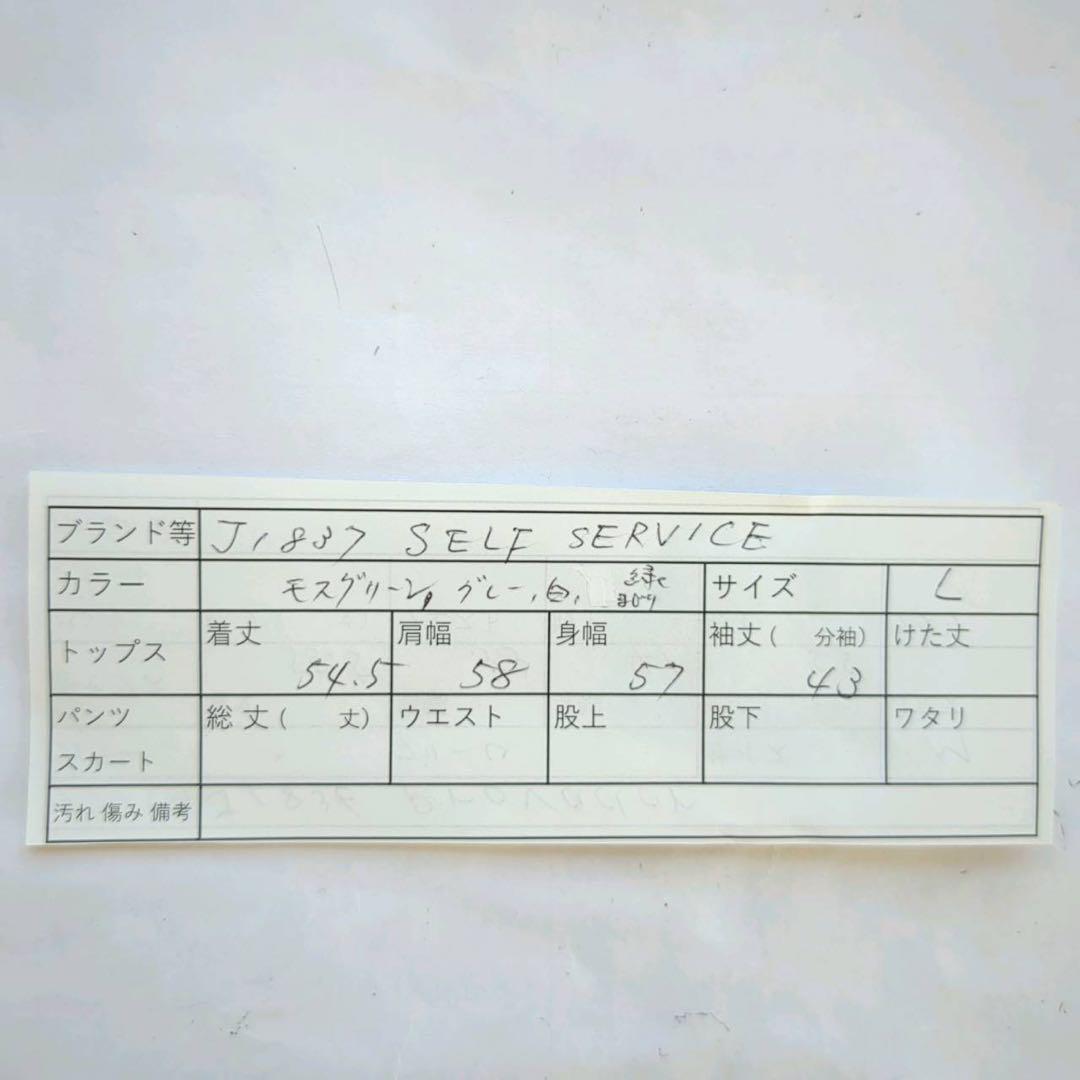 ブランド等 J1837 SELF SERVICE
カラー モスグリーン, グレー, 白, サイズ L
トップス 着丈 54.5 肩幅 58 身幅 57 袖丈( 分袖) 43 けた丈
パンツ スカート 総丈( 丈) ウエスト 股上 股下 ワタリ
汚れ 傷み 備考